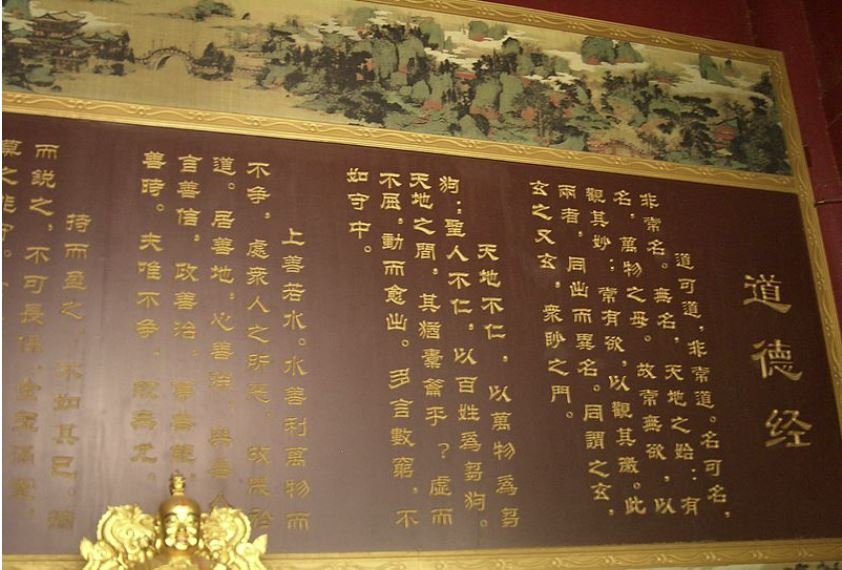 道德经
道可道，非常道。名可名，
非常名。無名，天地之始：有
名，萬物之母。故常無欲，以
觀其妙：常有欲，以觀其徼。此
兩者，同出而異名。同謂之玄，
玄之又玄，衆眇之門。
天地不仁，以萬物爲芻
狗；聖人不仁，以百姓爲芻狗。
天地之間，其猶橐籥乎？虛而
不屈，動而愈出。多言數窮，不
如守中。
上善若水。水善利萬物而
不争，處衆人之所惡，故幾於
道。居善地，心善淵，與善人
言善信，政善治，事善能
善時。夫唯不争，故無尤。
持而盈之，不如其已。揣
而銳之，不可長保，金玉滿堂，
莫之能守。